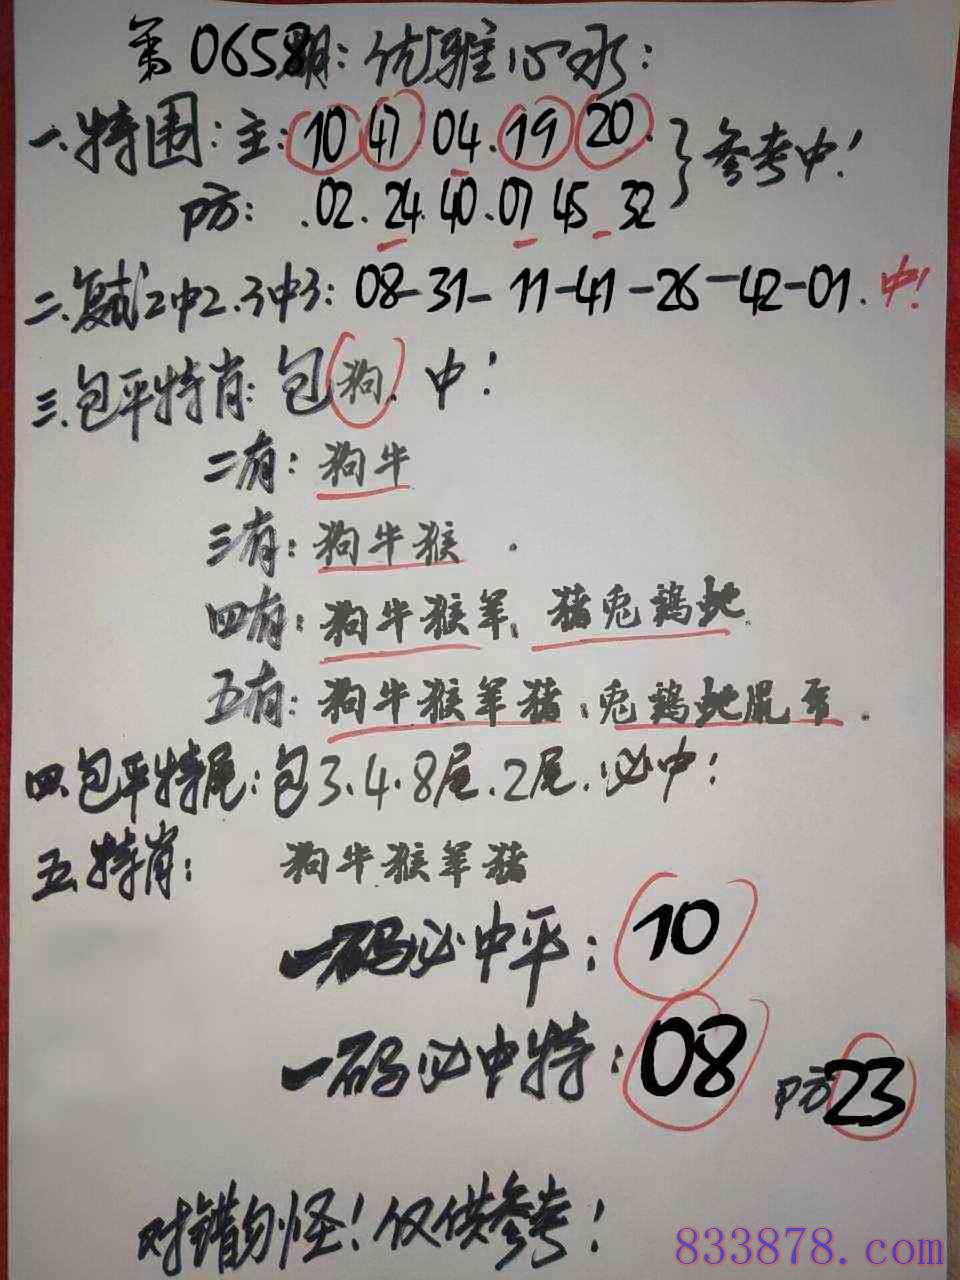 第0658期：优雅心水：
一.特围：主：10 47 04.19 20.
防：.02.24.40.07 45 32
参考中！
二.复试2中2.3中3：08-31-11-41-26-42-01.中！
三.包平特肖：包狗.中！
二有：狗牛
三有：狗牛猴.
四有：狗牛猴羊、猪兔鸡蛇
五有：狗牛猴羊猪；兔鸡蛇鼠.
四.包平特尾：包3.4.8尾.2尾.必中！
五.特肖：狗牛猴羊猪
一码必中平：10
一码必中特：08 防23
对错勿怪！仅供参考！
833878.com